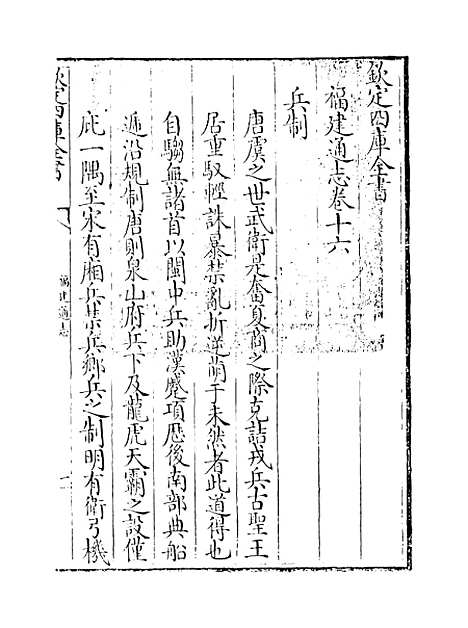 欽定四庫全書
福建通志卷十六
兵制
唐虞之世武衛是奮夏商之際克詰戎兵古聖王
居重馭輕誅暴禁亂折逆萌于未然者此道得也
自騶無諸首以閩中兵助漢蹙項歴後南部典船
遞沿規制唐則泉山府兵下及龍虎天霸之設僅
庇一隅至宋有廂兵禁兵鄉兵之制明有衛弓機
欽定四庫全書
福建通志
一